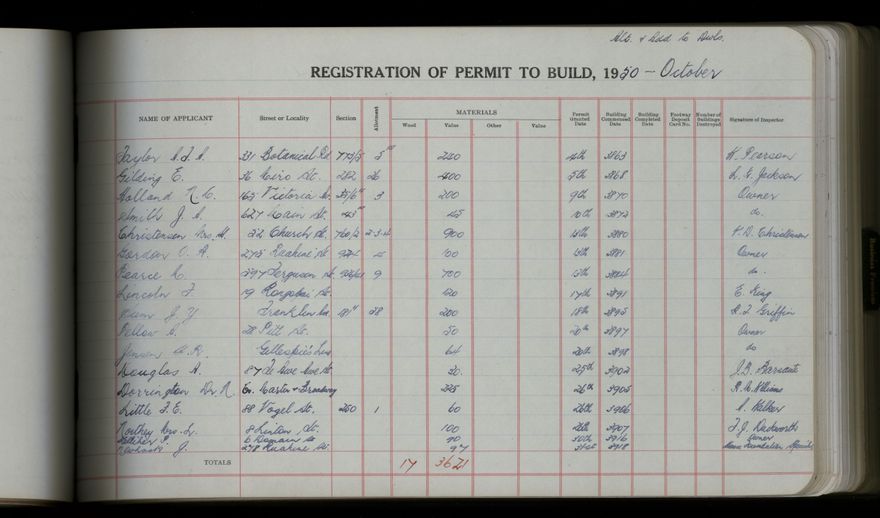 Alt. & Add to Dwls.
REGISTRATION OF PERMIT TO BUILD, 1950 - October
NAME OF APPLICANT Street or Locality Section Allotment MATERIALS Permit Granted Date Building Commenced Date Building Completed Date Footway Deposit Card No. Number of Buildings Destroyed Signature of Inspector
Wood Value Other Value
Taylor 331 Botanical Rd 240 4th 3863 H. Pearson
Gilding E. 36 Cairo St. 282 26 400 5th 3868 L. G. Jackson
Holland N. C. 163 Victoria 3 200 9th 3870 Owner
Smith J. 627 Main St. 45 10th 3872 do.
Christensen Mrs. 22 Church St. 2-3-4 900 3880 Christensen
Gordon O. A. 275 Ruahine St 100 3881 Owner
Pearce 297 Ferguson St. 9 700 3884 do.
Lincoln J. 19 Rongotai St. 120 17th 3891 E. King
J. Y. Franklin 28 200 18th 3895 Griffin
28 Pitt St. 50 20th 3897 Owner
Jensen Gillespie's Line 64 20th 3898 do
Douglas A. 87 Te Awe Awe St. 20 25th 3902 J. B. Barsanti
Dorrington Dr. N. Cr. Martin & Broadway 225 26th 3905 Williams
Little F. E. 88 Vogel St. 250 1 60 26th 3906 Walker
Northey Mrs. 8 Linton St. 100 3907 F. J. Duckworth
P. 6 Domain 90 30th 3916 Owner
J. 278 Ruahine St. 97 31st 3918
TOTALS 17 3621